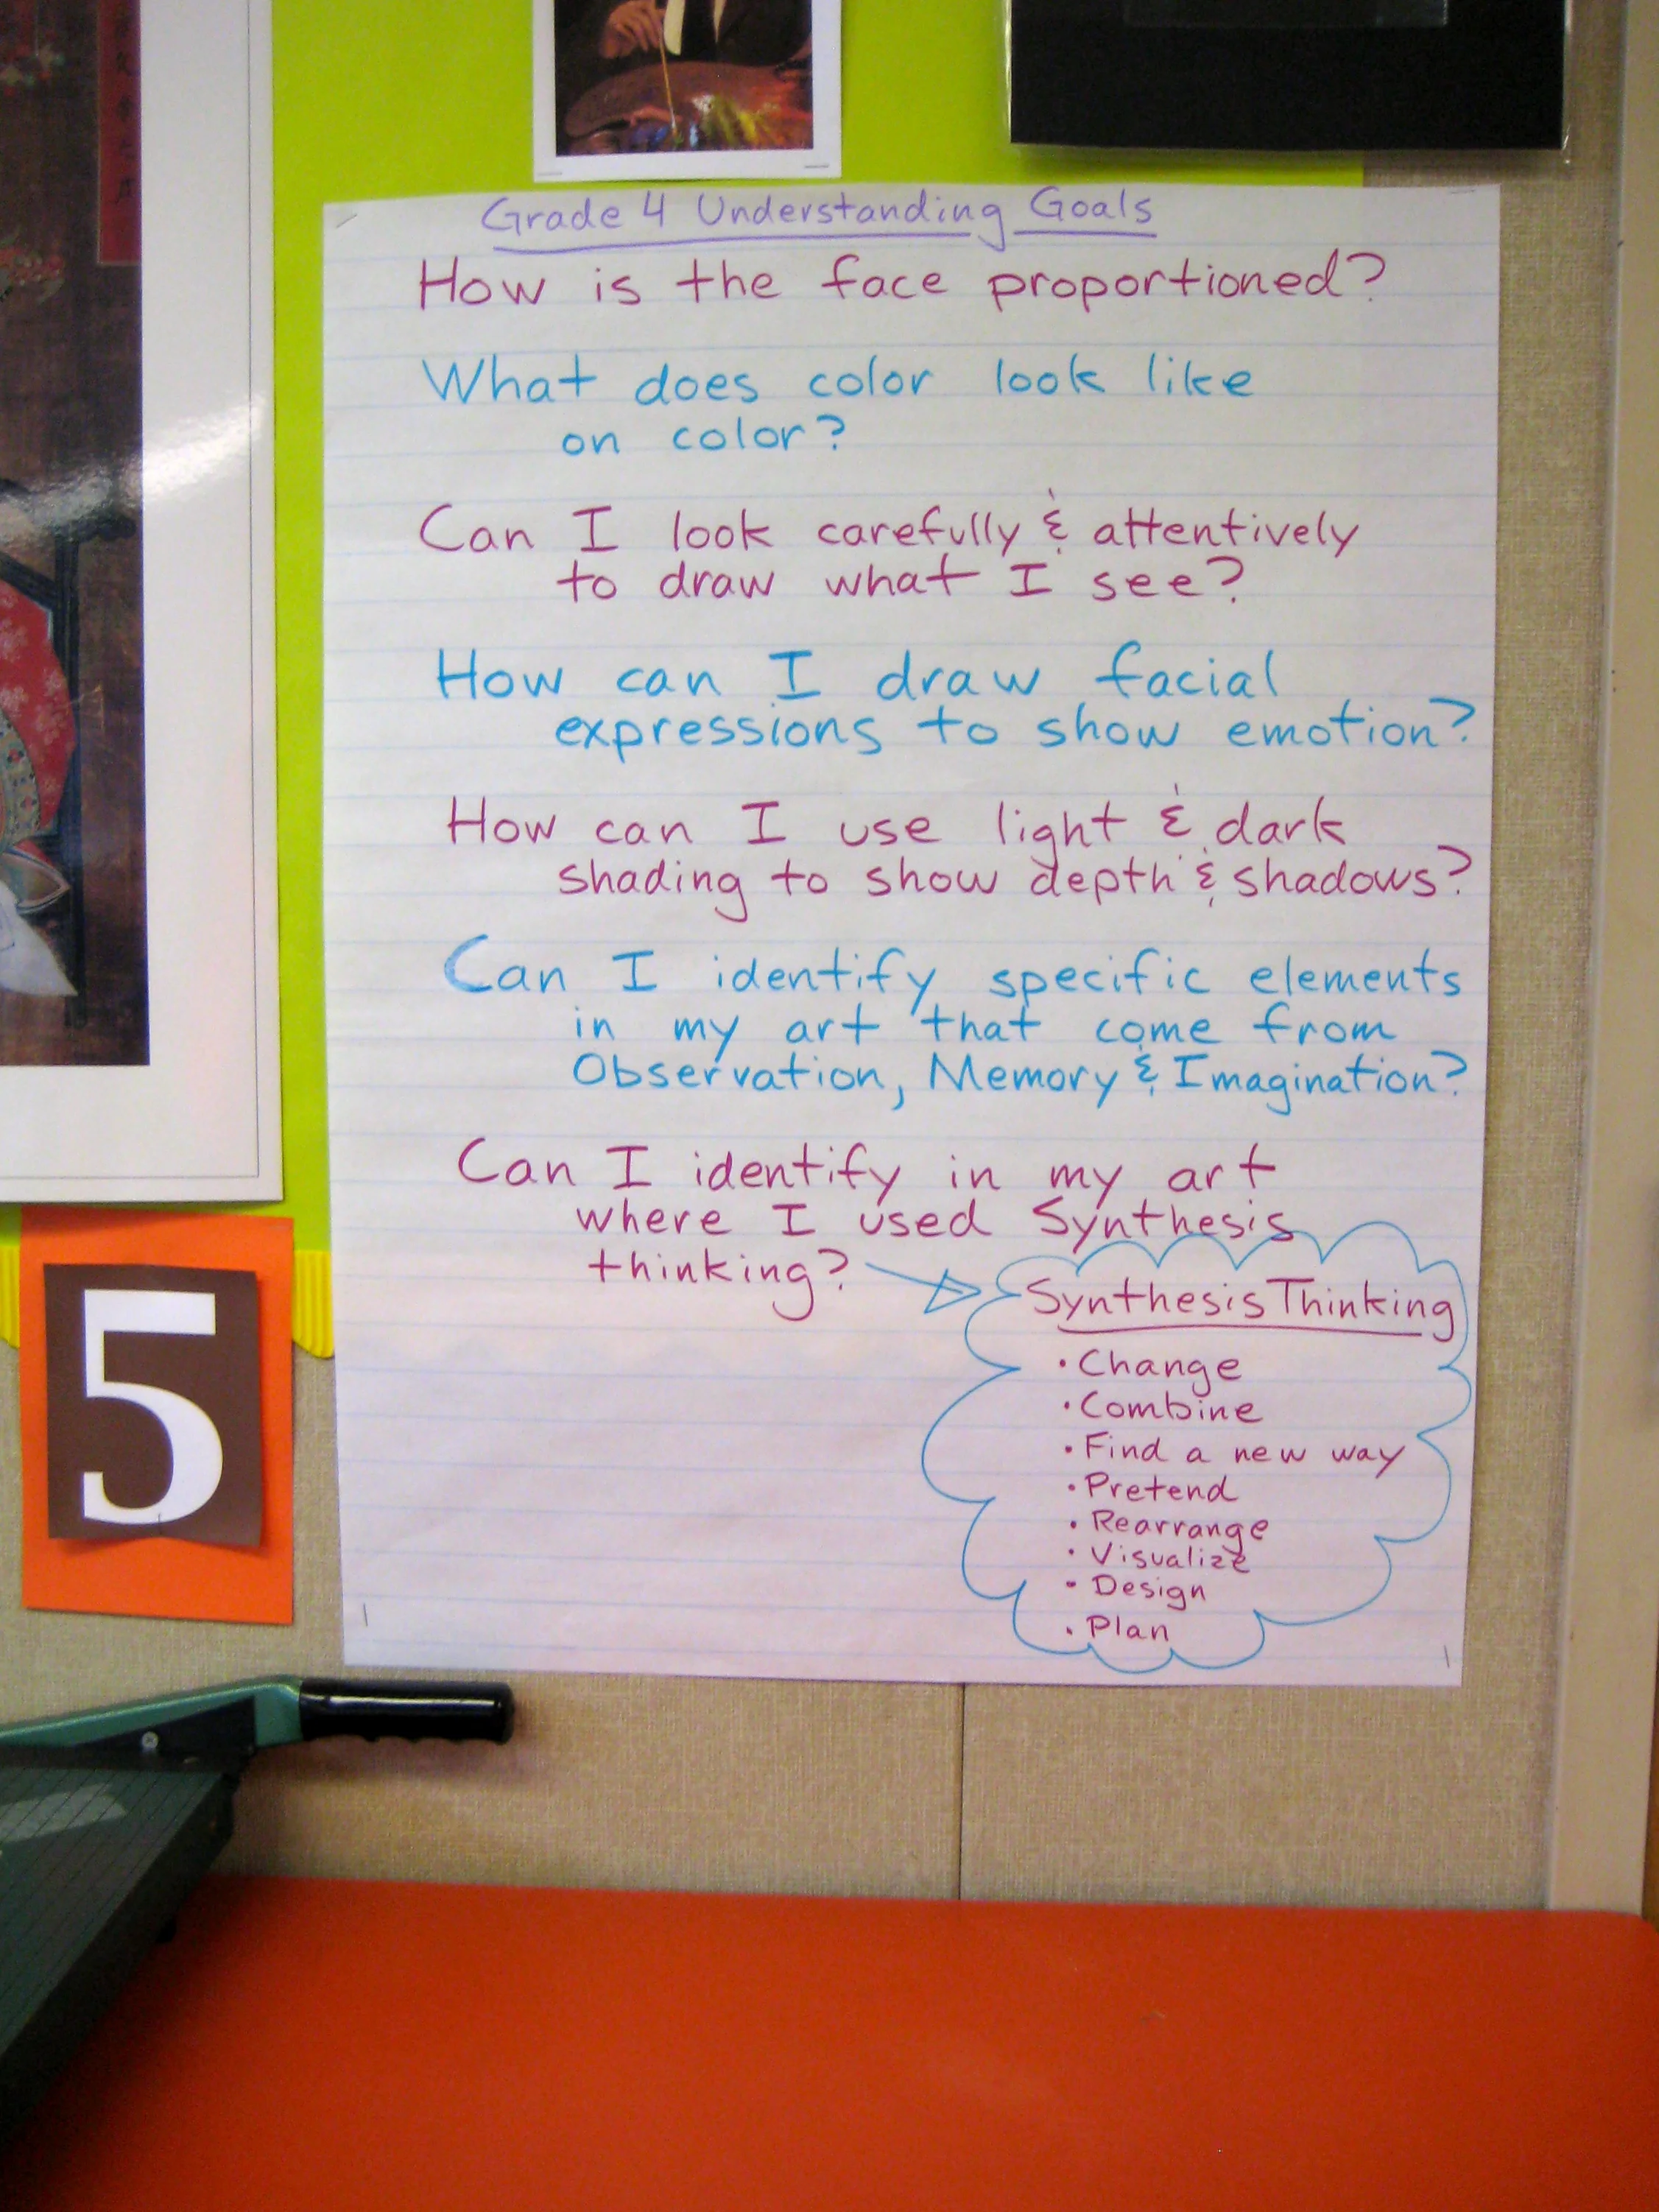 Grade 4 Understanding Goals
How is the face proportioned?
What does color look like
on color?
Can I look carefully & attentively
to draw what I see?
How can I draw facial
expressions to show emotion?
How can I use light & dark
shading to show depth & shadows?
Can I identify specific elements
in my art that come from
Observation, Memory & Imagination?
Can I identify in my art
where I used Synthesis
thinking?
Synthesis Thinking
• Change
• Combine
• Find a new way
• Pretend
• Rearrange
• Visualize
• Design
• Plan
5